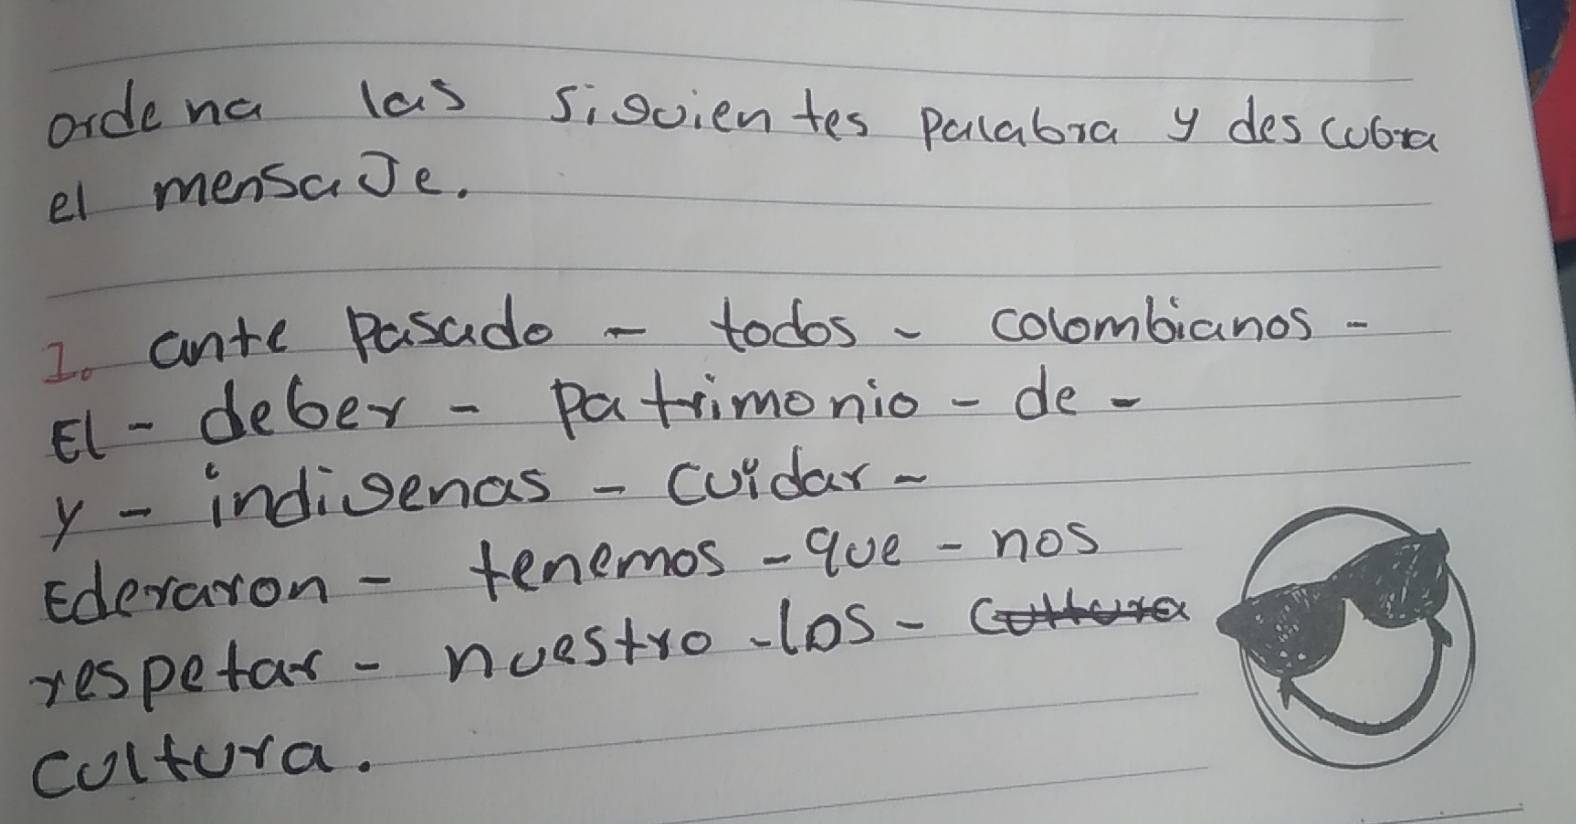 ordena las siguientes palabra y descubra
el mensaje.
1. ante pasado - todos - colombianos -
El - deber - patrimonio - de -
y - indigenas - cuidar -
Ederaron - tenemos - que - nos
respetar - nuestro - los - cultura
cultura.